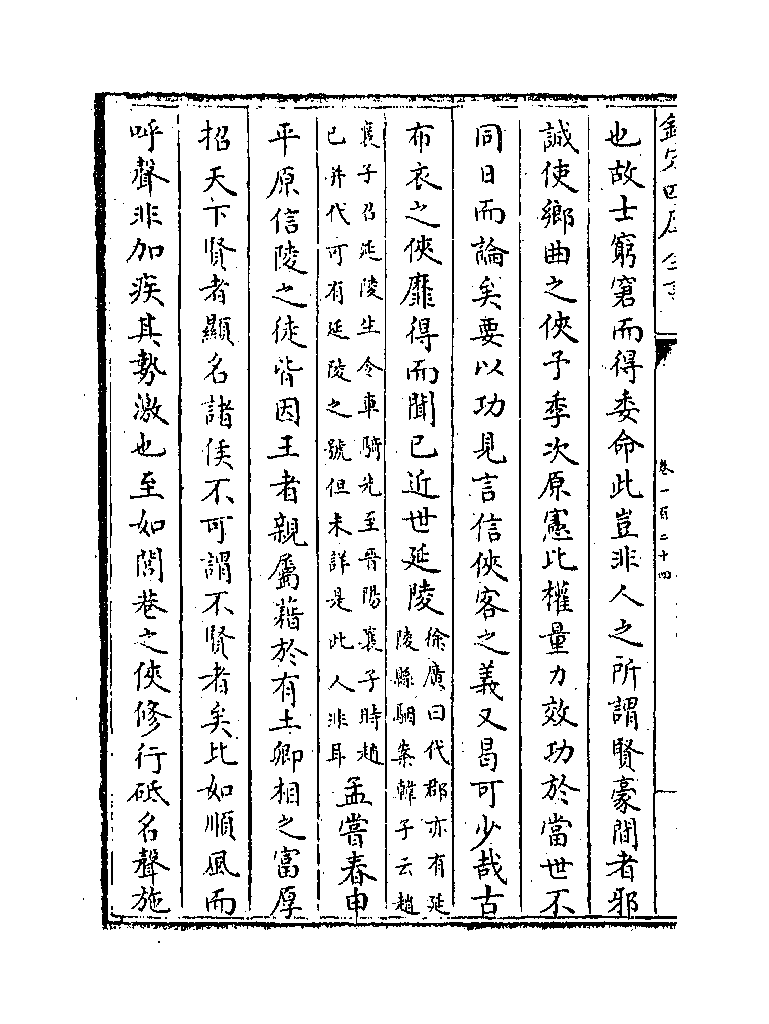 欽定四庫全書
卷一百二十四
也故士窮窘而得委命此豈非人之所謂賢豪間者邪
誠使鄉曲之俠予季次原憲比權量力效功於當世不
同日而論矣要以功見言信俠客之義又曷可少哉古
布衣之俠靡得而聞已近世延陵徐廣曰代郡亦有延陵縣駰案韓子云趙
襄子召延陵生令車騎先至晉陽襄子時趙已并代可有延陵之號但未詳是此人非耳孟嘗春申
平原信陵之徒皆因王者親屬藉於有土卿相之富厚
招天下賢者顯名諸侯不可謂不賢者矣比如順風而
呼聲非加疾其勢激也至如閭巷之俠修行砥名聲施